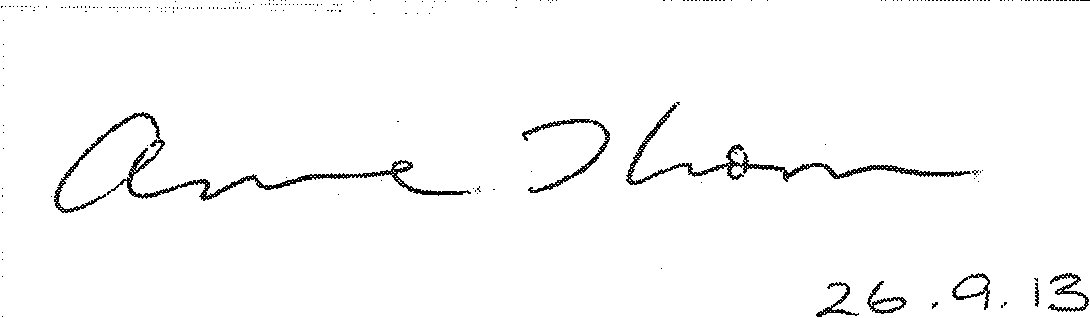 Anne Thom
26.9.13